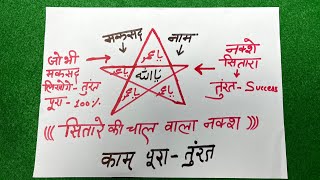 मकसद
नाम
जो भी
मकसद
लिखोगे - तुरंत
पूरा - 100%
नक्शे
सितारा
तुरंत - Success
یا اللہ
((( सितारे की चाल वाला नक्श )))
काम पूरा - तुरंत